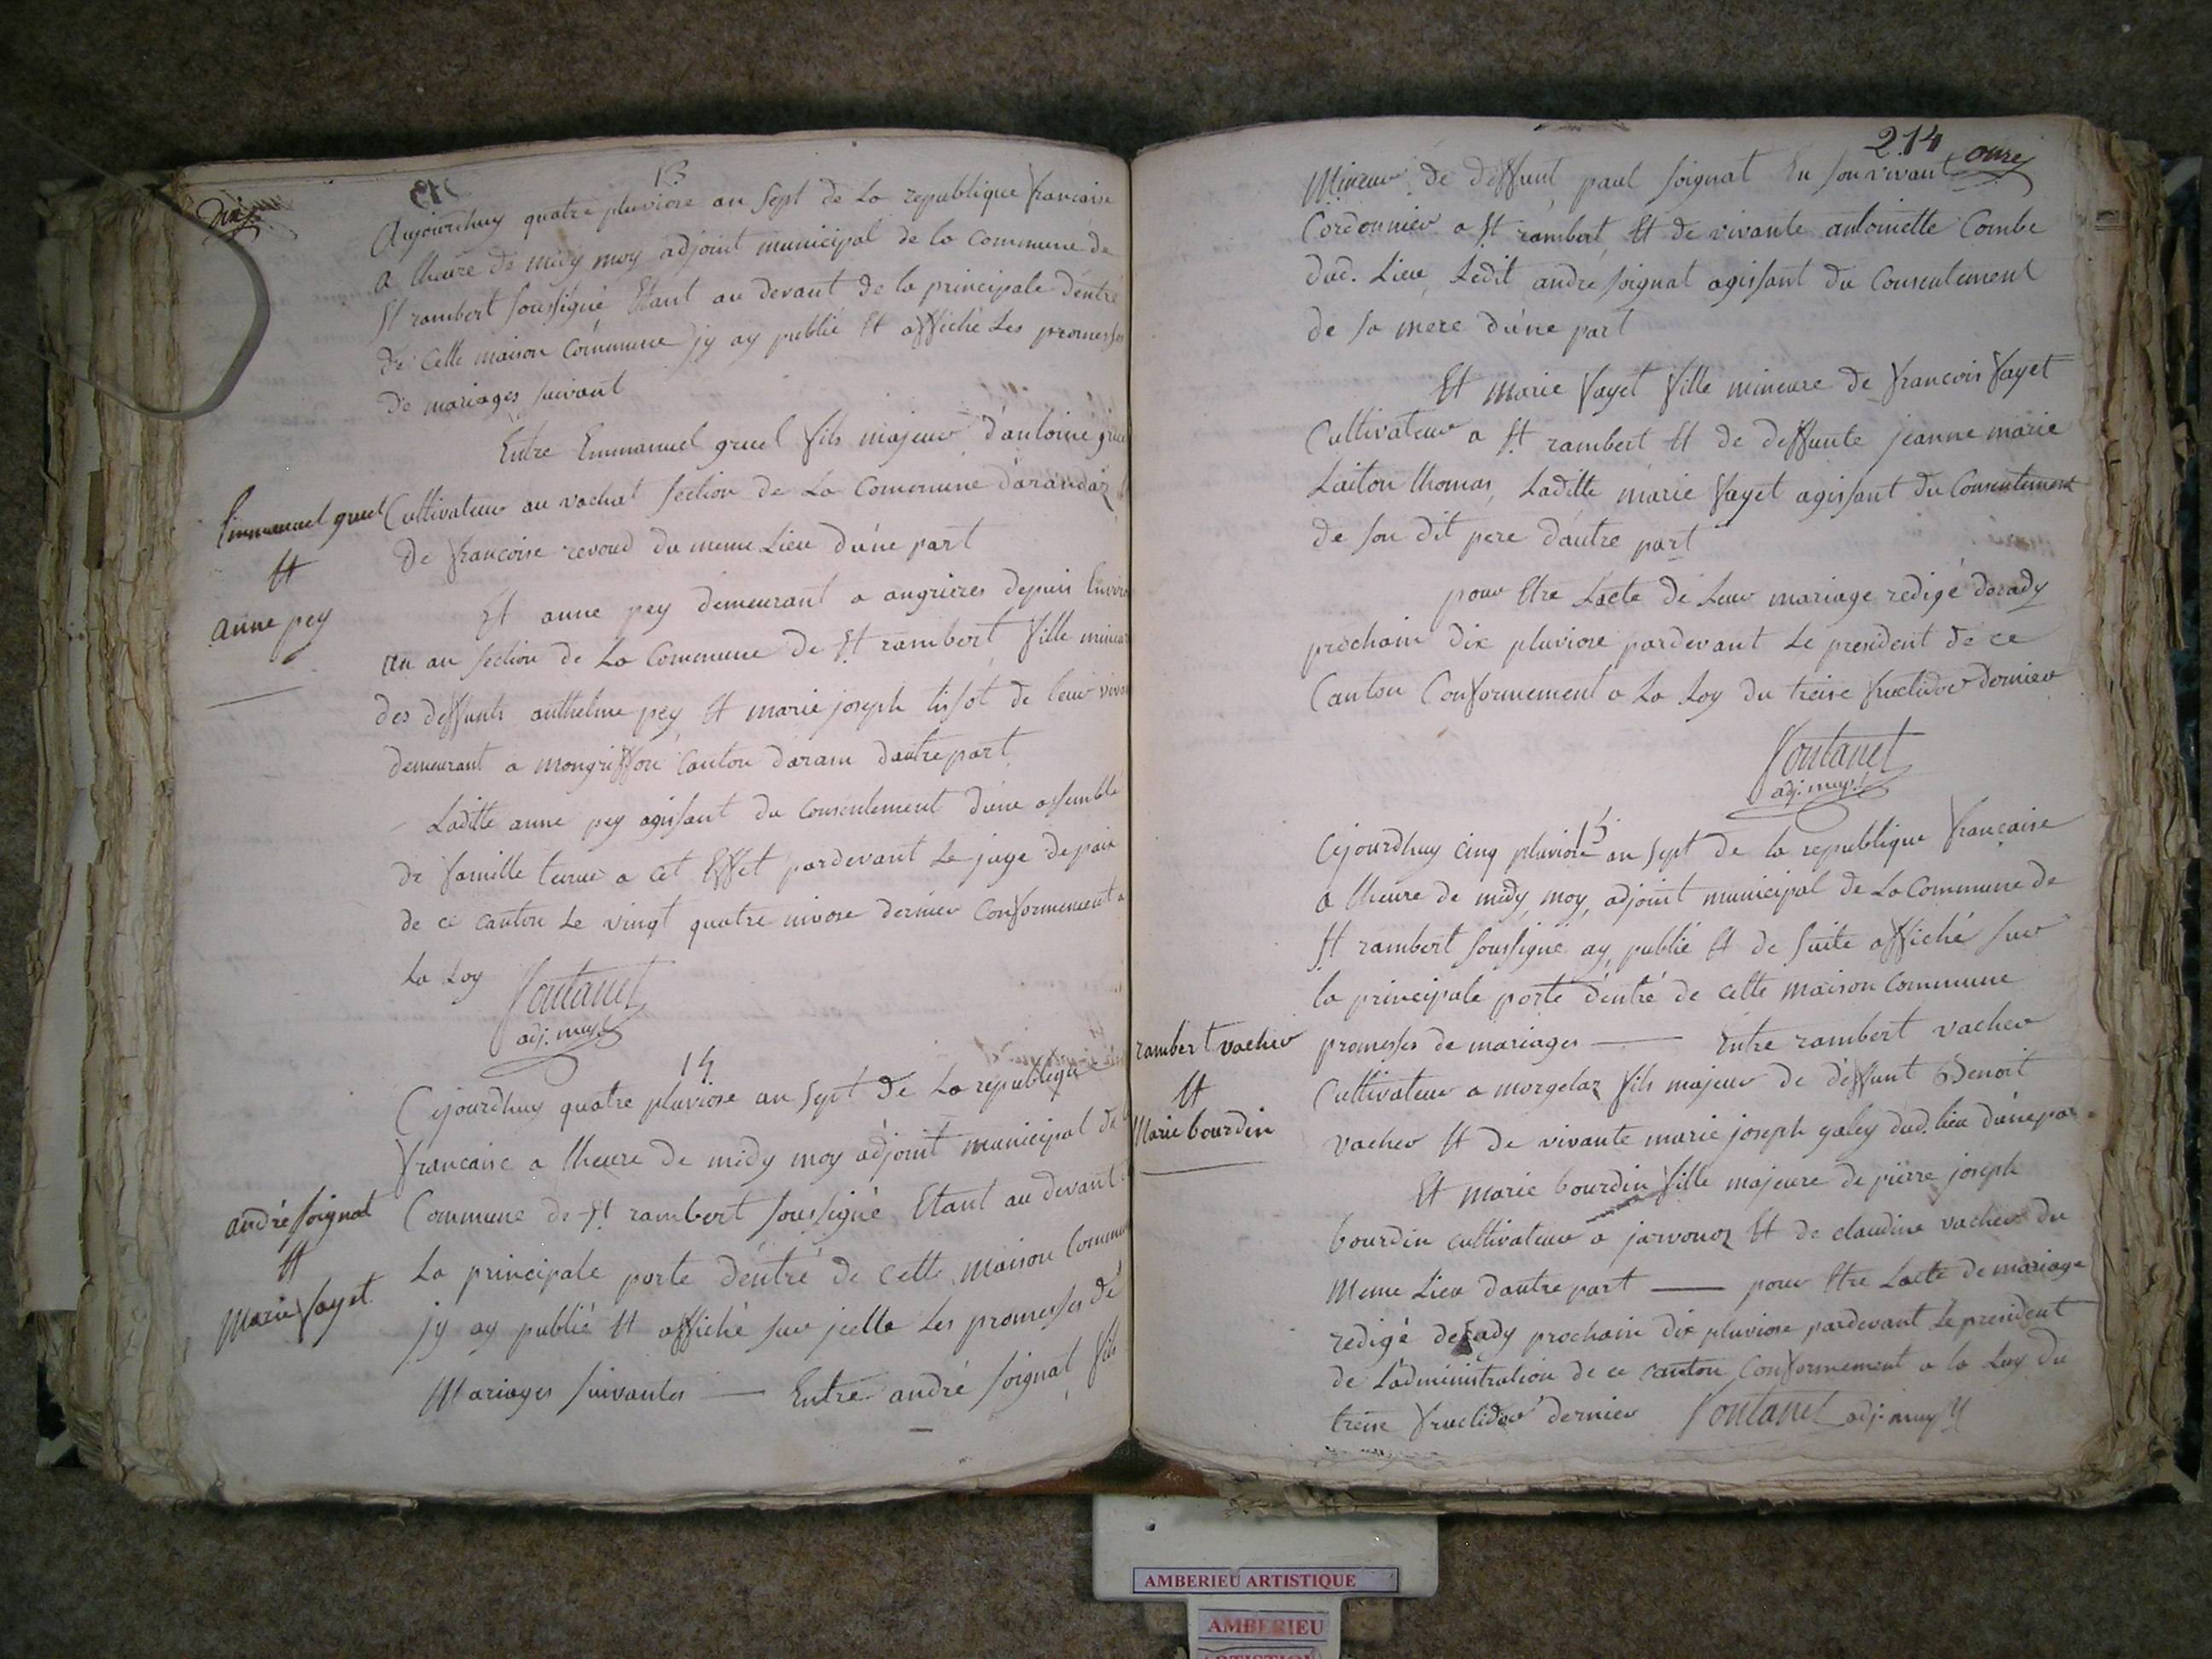 dix
13
Aujourdhuy quatre pluviose an sept de La republique francaise
a lheure de midy moy adjoint municipal de la commune de
St rambert soussigné Etant au devant de la principale dentré
de cette maison Commune jy ay publié Et affiché Les promesses
de mariages suivant
Entre Emmanuel gruel fils majeur d'antoine gruel
Emmanuel gruel
Et
anne pey
Cultivateur au vachat section de La Commune darandaz
De francoise revoud du meme Lieu d'une part
Et anne pey demeurant a angrieres depuis Environ
un an section de La Commune de St rambert fille mineure
des deffunts anthelme pey Et marie joseph tissot de leur vivant
demeurant a mongriffon Canton daram dautre part
Laditte anne pey agissant du consentement dune assemblé
de famille tenue a cet Effet pardevant Le juge de paix
de ce canton Le vingt quatre nivose dernier Conformement a
La Loy
Fontanel
adj. mupl
14
Cejourdhuy quatre pluviose an sept de La republique
francaise a lheure de midy moy adjoint municipal de la
andré soignat
Et
Marie fayet
Commune de St rambert soussigné Etant au devant
La principale porte dentré de cette maison Commune
jy ay publié Et affiché sur jcelle Les promesses de
Mariages suivantes — Entre andré soignat fils
214
onze
Mineur de deffunt paul soignat En son vivant
Cordonnier a St rambert Et de vivante antoinette Combe
dud. Lieu, Ledit andré soignat agissant du Consentement
de sa mere dune part
Et marie fayet fille mineure de francois fayet
Cultivateur a St rambert Et de deffunte jeanne marie
Laiton thomas, Laditte marie fayet agissant du Consentement
de son dit pere dautre part
pour Etre Lacte de Leur mariage redigé decady
prochain dix pluviose pardevant Le president de ce
Canton Conformement a La Loy du treise fructidor dernier
Fontanel
adj. mupl
15
Cejourdhuy cinq pluviose an sept de la republique francaise
a lheure de midy moy, adjoint municipal de La Commune de
St rambert soussigné ay, publié Et de suite affiché sur
la principale porte dentré de cette maison Commune
rambert vacher
Et
Marie bourdin
promesses de mariages — Entre rambert vacher
Cultivateur a morgelaz fils majeur de deffunt Benoit
vacher Et de vivante marie joseph galey dud. lieu dune par
Et marie bourdin fille majeure de pierre joseph
bourdin cultivateur a javornoz Et de claudine vacher du
Meme Lieu dautre part — pour Etre Lacte de mariage
redigé decady prochain dix pluviose pardevant Le president
de Ladministration de ce canton Conformement a la Loy du
treise fructidor dernier Fontanel adj. mupl
AMBERIEU ARTISTIQUE
AMBERIEU
ARTISTIQUE